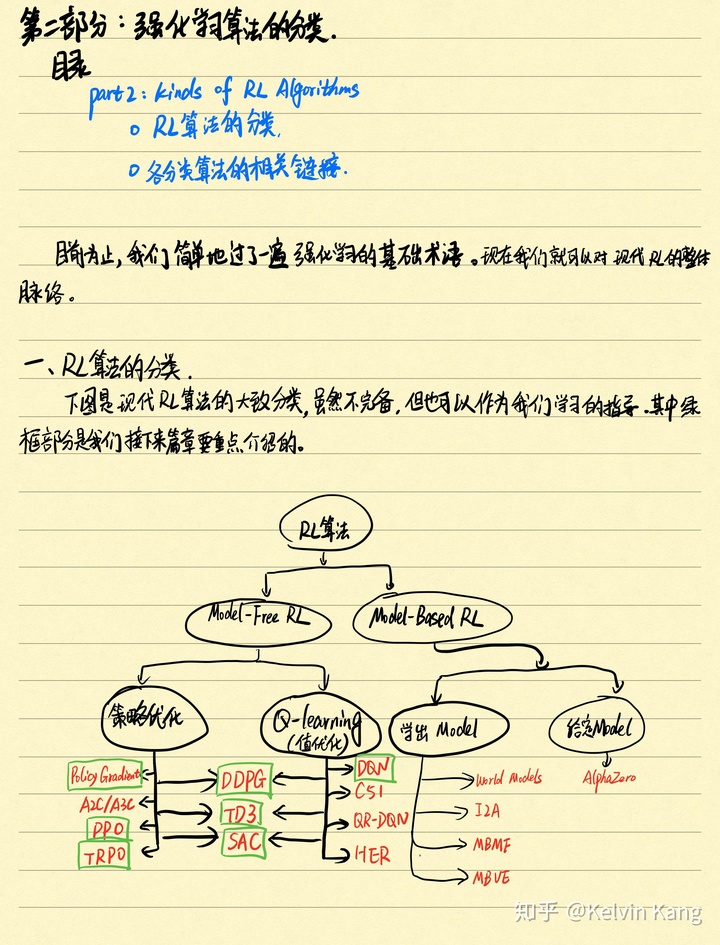 第二部分：强化学习算法的分类.
目录
part2: Kinds of RL Algorithms
○ RL算法的分类.
○ 各分类算法的相关链接.
目前为止，我们简单地过了一遍强化学习的基础术语。现在我们就可以对现代RL的整体
脉络。
一、RL算法的分类.
下图是现代RL算法的大致分类，虽然不完备，但也可以作为我们学习的指导.其中绿
框部分是我们接下来篇章要重点介绍的。
RL算法
Model-Free RL
Model-Based RL
策略优化
Q-learning
(值优化)
学出 Model
给定Model
Policy Gradient
A2C/A3C
PPO
TRPO
DDPG
TD3
SAC
DQN
C51
QR-DQN
HER
World Models
I2A
MBMF
MBVE
AlphaZero
知乎 @Kelvin Kang